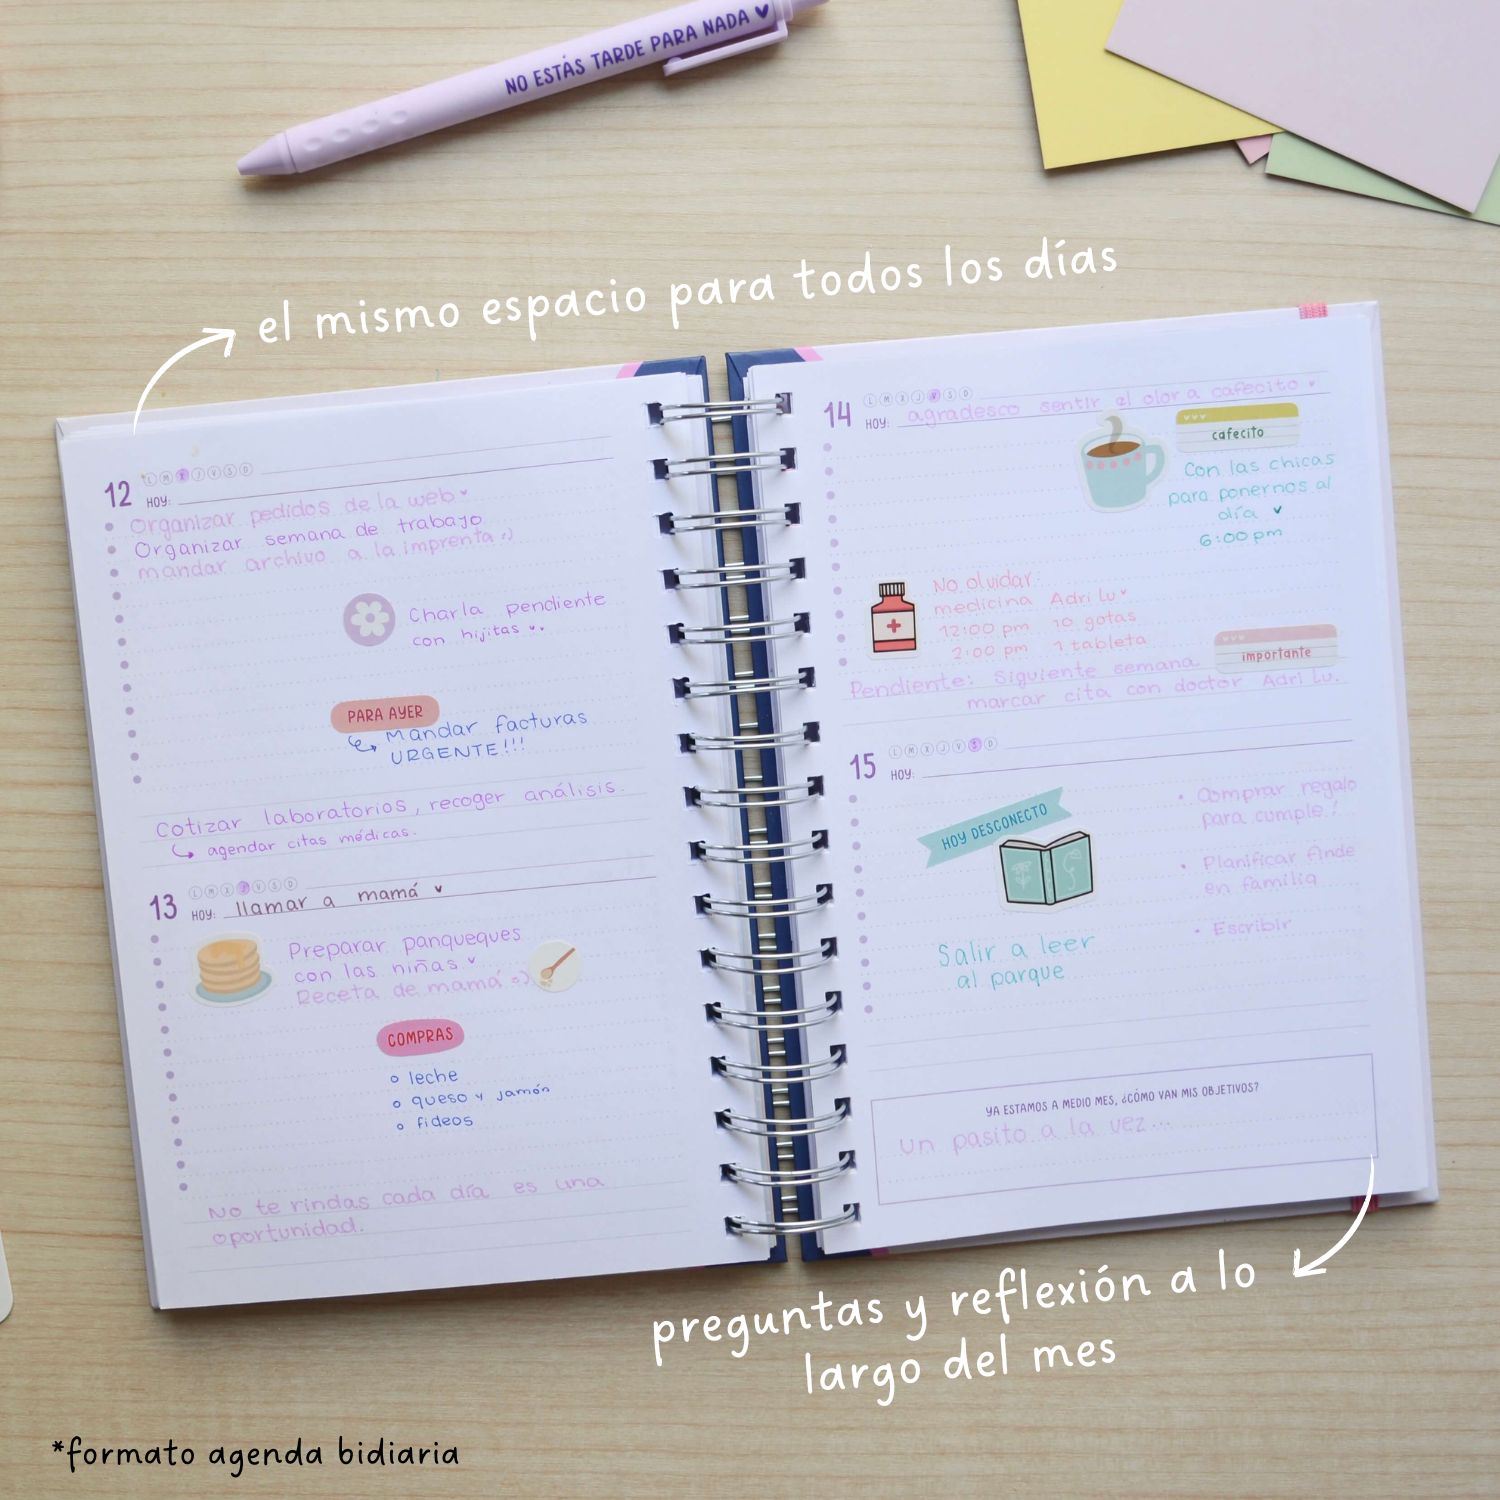 NO ESTÁS TARDE PARA NADA
el mismo espacio para todos los días
12
L M X J V S D
HOY:
Organizar pedidos de la web
Organizar semana de trabajo
mandar archivo a la imprenta :)
Charla pendiente
con hijitas
PARA AYER
Mandar facturas
URGENTE!!!
Cotizar laboratorios, recoger análisis.
agendar citas médicas.
13
L M X J V S D
HOY: llamar a mamá
Preparar panqueques
con las niñas
Receta de mamá :)
COMPRAS
leche
queso y jamón
fideos
No te rindas cada día es una
oportunidad.
14
L M X J V S D
HOY: agradesco sentir el olor a cafecito
cafecito
Con las chicas
para ponernos al
día
6:00 pm
No olvidar
medicina Adri Lu
12:00 pm 10 gotas
2:00 pm 1 tableta
importante
Pendiente: Siguiente semana
marcar cita con doctor Adri Lu.
15
L M X J V S D
HOY:
HOY DESCONECTO
Salir a leer
al parque
• Comprar regalo
para cumple!
• Planificar finde
en familia
• Escribir
YA ESTAMOS A MEDIO MES, ¿CÓMO VAN MIS OBJETIVOS?
un pasito a la vez...
preguntas y reflexión a lo
largo del mes
*formato agenda bidiaria